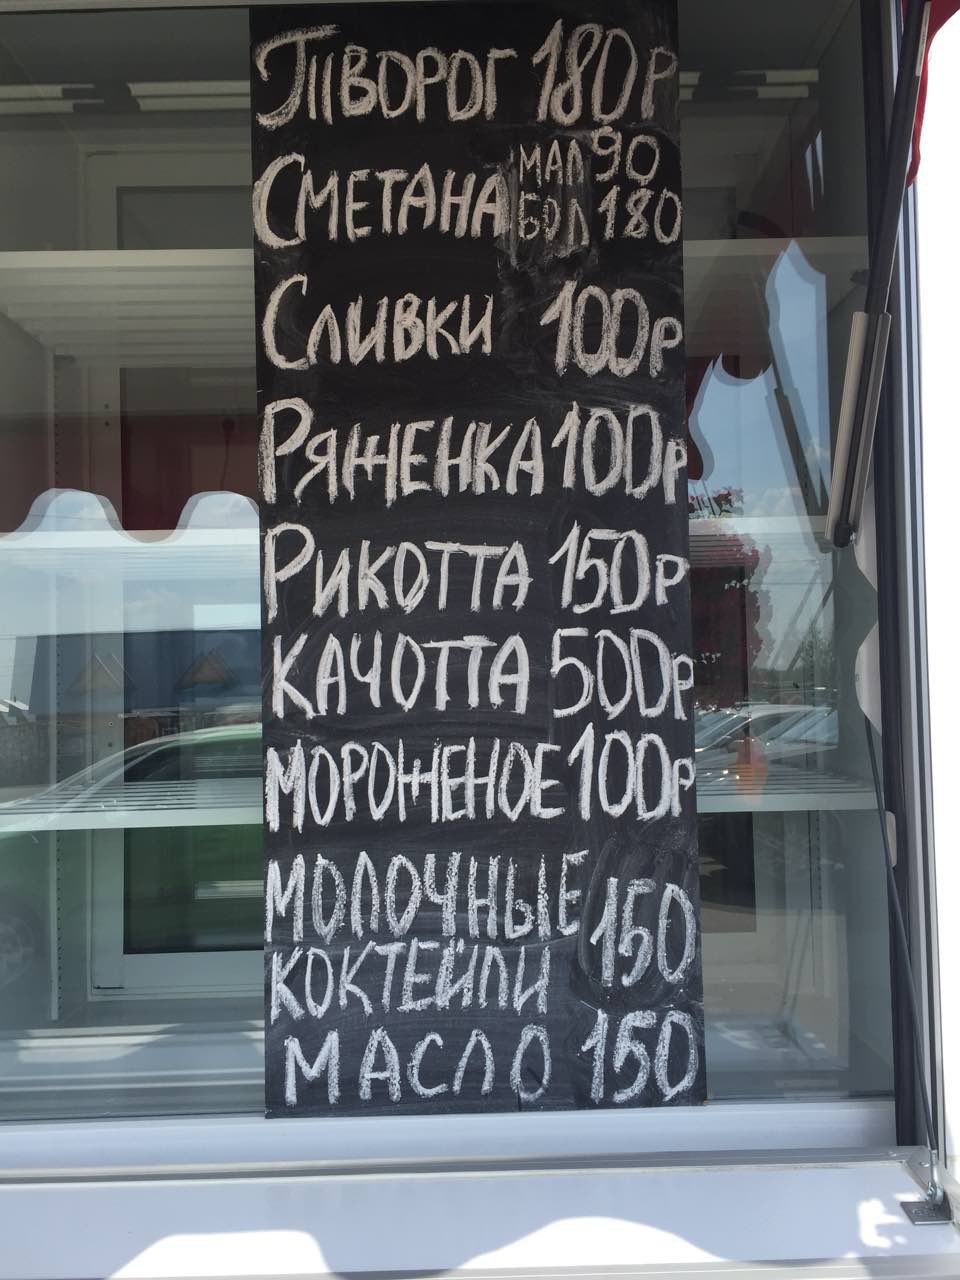 Творог 180р
Сметана мал 90
бол 180
Сливки 100р
Ряженка 100р
Рикотта 150р
Качотта 500р
Мороженое 100р
Молочные
коктейли 150
масло 150